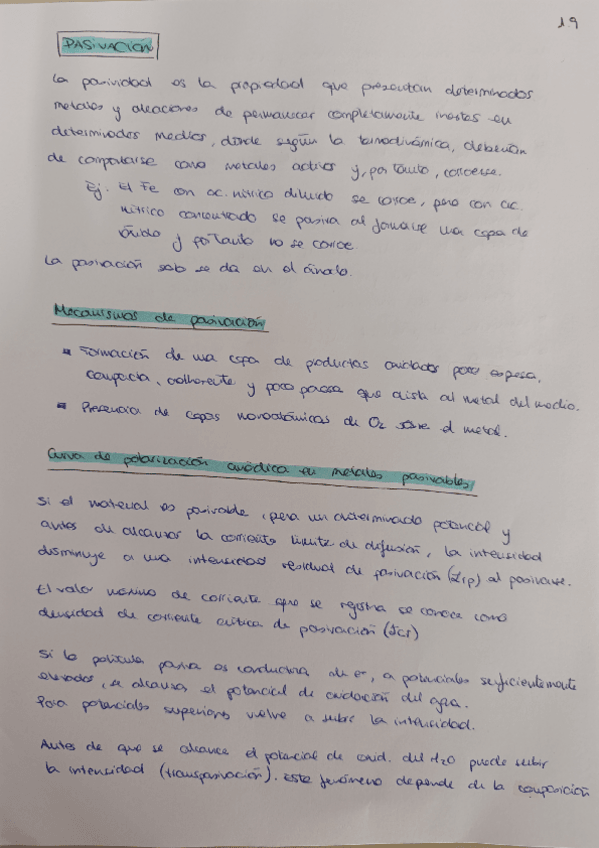 19
PASIVACIÓN
La pasividad es la propiedad que presentan determinados
metales y aleaciones de permanecer completamente inertes en
determinados medios, donde según la termodinámica, deberían
de comportarse como metales activos y, por tanto, corroerse.
Ej. El Fe con ac. nítrico diluido se corroe, pero con ac.
nítrico concentrado se pasiva al formarse una capa de
óxido y por tanto no se corroe.
La pasivación solo se da en el ánodo.
Mecanismos de pasivación
- Formación de una capa de productos oxidados poco espesa,
compacta, adherente y poco porosa que aísla al metal del medio.
- Presencia de capas monoatómicas de O2 sobre el metal.
Curva de polarización anódica en metales pasivables
Si el material es pasivable, para un determinado potencial y
antes de alcanzar la corriente límite de difusión, la intensidad
disminuye a una intensidad residual de pasivación (irp) al pasivarse.
El valor máximo de corriente que se registra se conoce como
densidad de corriente crítica de pasivación (icr)
Si la película pasiva es conductora de e-, a potenciales suficientemente
elevados, se alcanza el potencial de oxidación del agua.
Para potenciales superiores vuelve a subir la intensidad.
Antes de que se alcance el potencial de oxid. del H2O puede subir
la intensidad (transpasivación). Este fenómeno depende de la composición